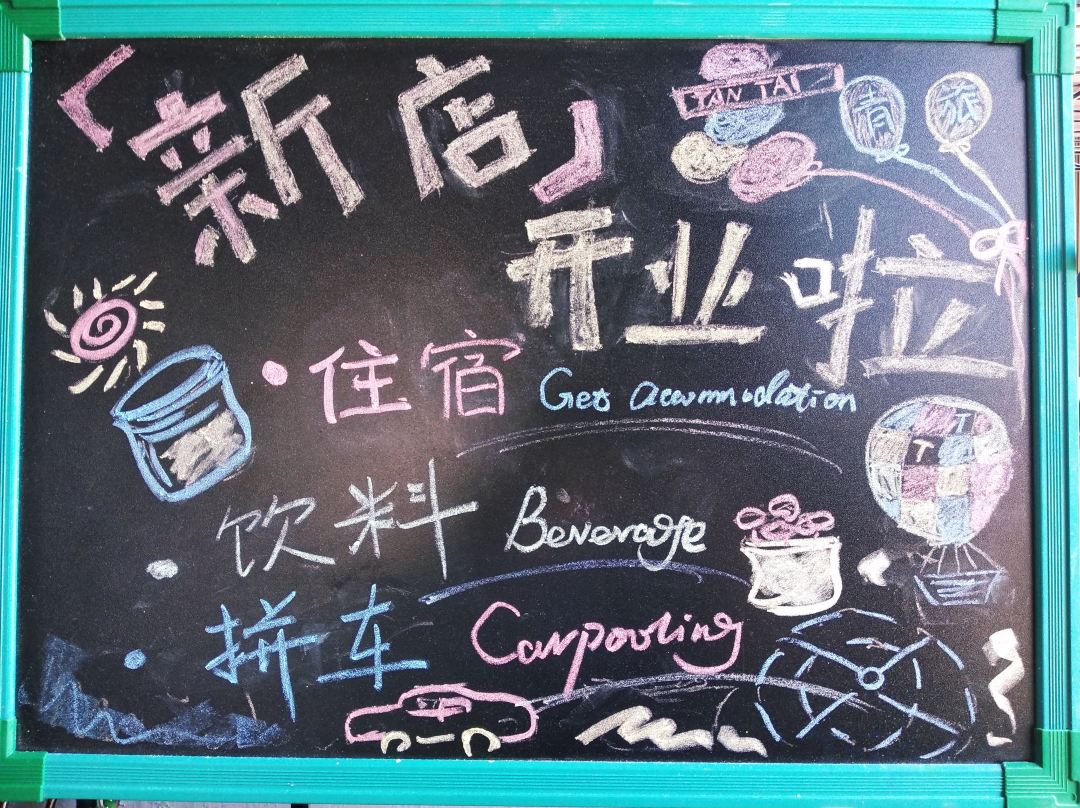 「新店」
TAN TAI
青 旅
开业啦
• 住宿 Get accommodation
T
T
• 饮料 Beverage
• 拼车 Carpooling